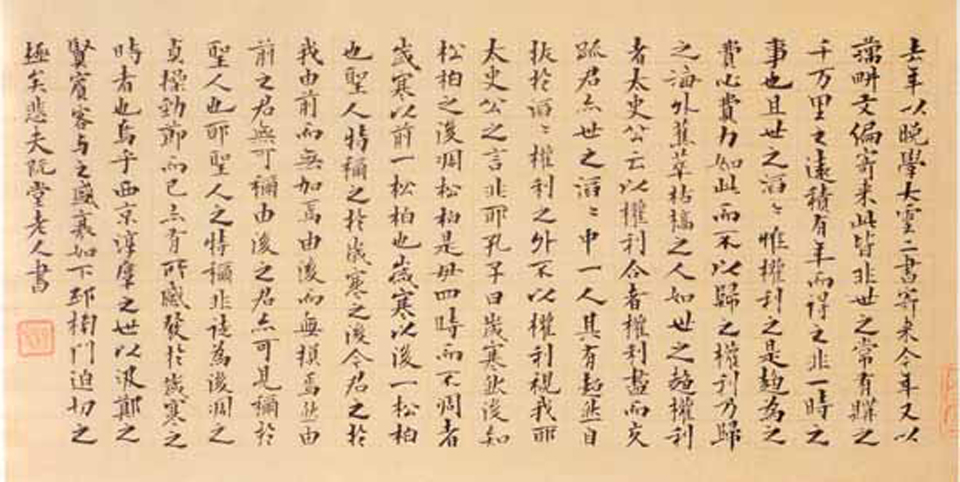 去年以晚學大雲二書寄來今年又以
藕畊文編寄來此皆非世之常有購之
千万里之遠積有年而得之非一時之
事也且世之滔〻惟權利之是趨為之
費心費力如此而不以歸之權利乃歸
之海外蕉萃枯槁之人如世之趨權利
者太史公云以權利合者權利盡而交
踈君亦世之滔〻中一人其有超然自
拔於滔〻權利之外不以權利視我耶
太史公之言非耶孔子曰歲寒然後知
松柏之後凋松柏是毋四時而不凋者
歲寒以前一松柏也歲寒以後一松柏
也聖人特稱之於歲寒之後今君之於
我由前而無加焉由後而無損焉然由
前之君無可稱由後之君亦可見稱於
聖人也耶聖人之特稱非徒為後凋之
貞操勁節而已亦有所感發於歲寒之
時者也烏乎西京淳厖之世以汲鄭之
賢賓客與之盛衰如下邳榜門迫切之
極矣悲夫阮堂老人書